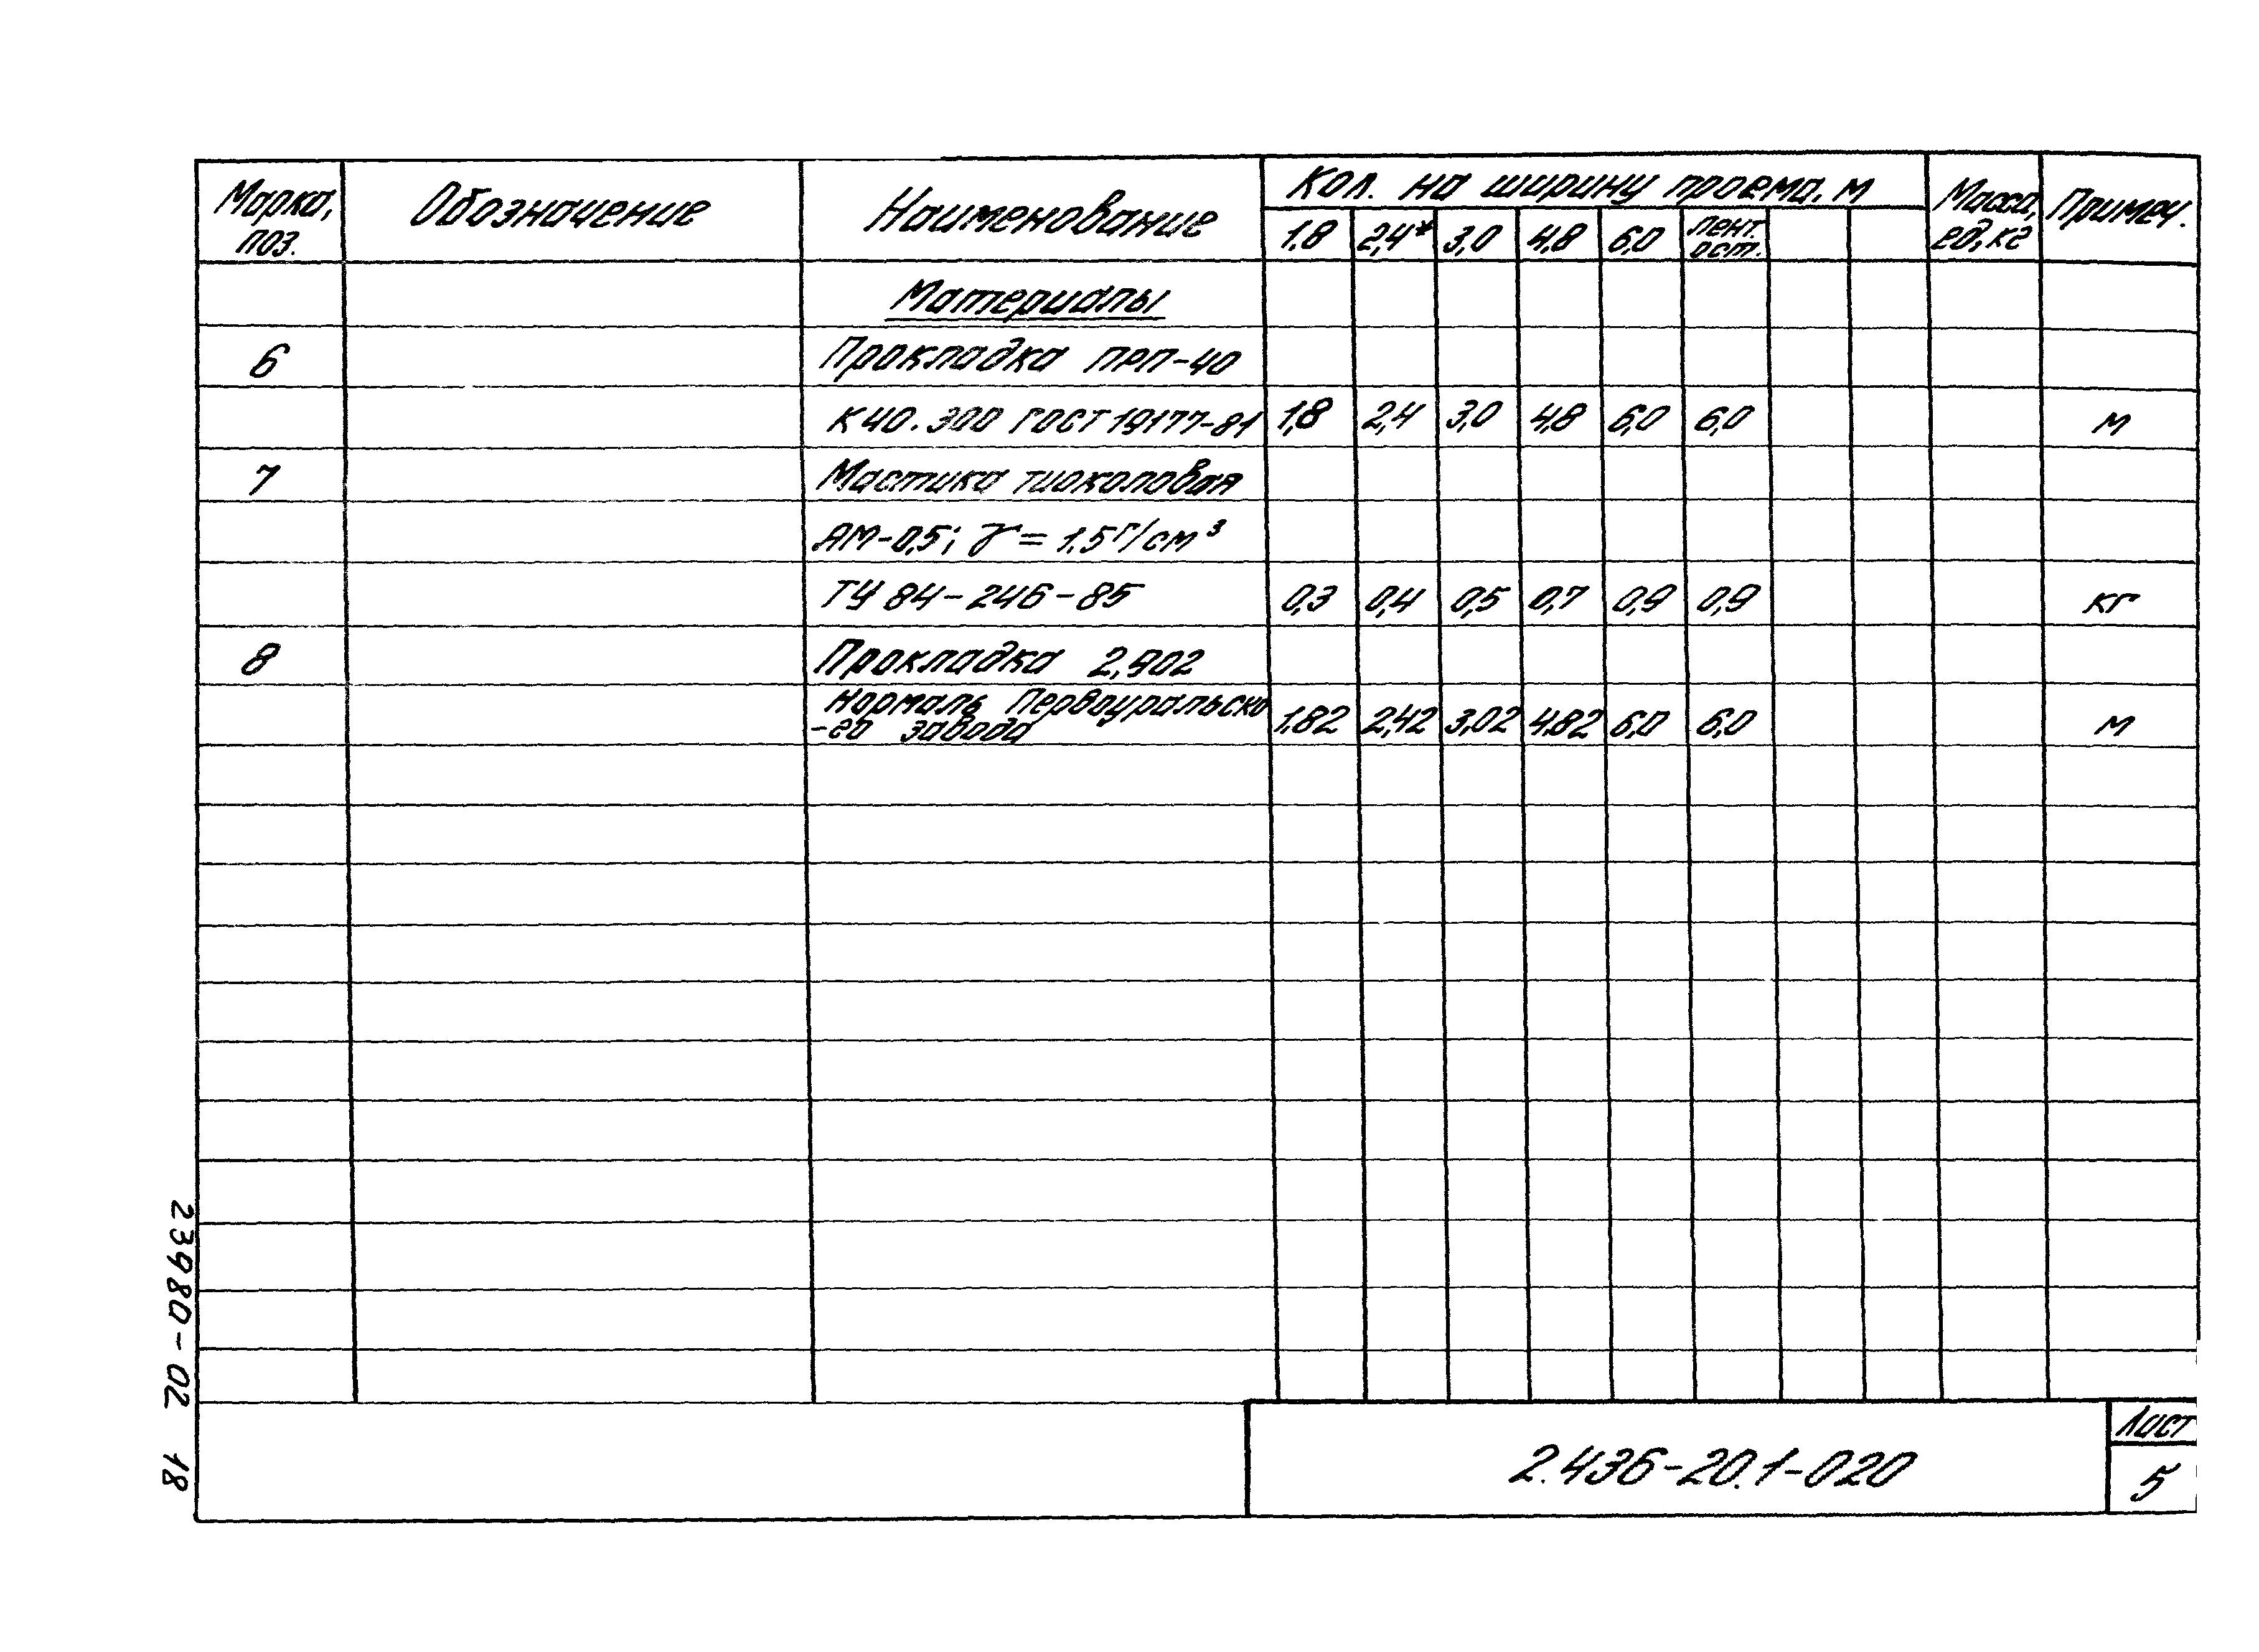 Марка, поз.
Обозначение
Наименование
Кол. на ширину проема, м
1,8 2,4* 3,0 4,8 6,0 лент. ост.
Масса, ед, кг
Примеч.
Материалы
6 Прокладка ПРП-40
К40.300 ГОСТ 19177-81 1,8 2,4 3,0 4,8 6,0 6,0 м
7 Мастика тиоколовая
АМ-0,5; γ = 1.5 г/см³
ТУ 84-246-85 0,3 0,4 0,5 0,7 0,9 0,9 кг
8 Прокладка 2,902
Нормаль Первоуральско
-го завода 1,82 2,42 3,02 4,82 6,0 6,0 м
23980-02 18
2.436-20.1-020
Лист
5